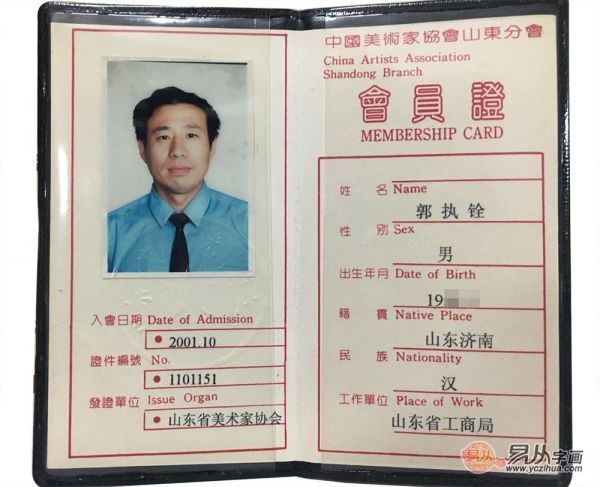 入會日期 Date of Admission
2001.10
證件編號 No.
1101151
發證單位 Issue Organ
山东省美术家协会
中國美術家協會山東分會
China Artists Association
Shandong Branch
會員證
MEMBERSHIP CARD
姓名 Name
郭执铨
性別 Sex
男
出生年月 Date of Birth
19
籍貫 Native Place
山东济南
民族 Nationality
汉
工作單位 Place of Work
山东省工商局
易从字画
www.yczihua.com